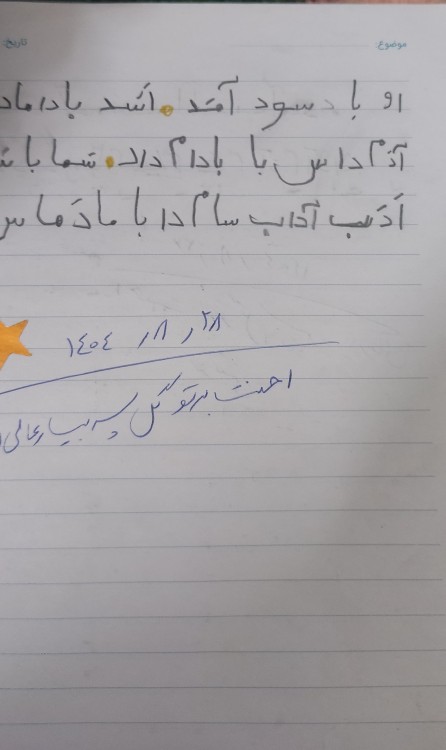 موضوع: تاریخ:
او با سود آمد. اسد با داماد
آدم داس با بادام داد. شما با
اَدَب آداب سام دارا با مادَر ماس
۱۴۰۴ / ۸ / ۲۸
احسنت بر تو گل پسر بسیار عالی